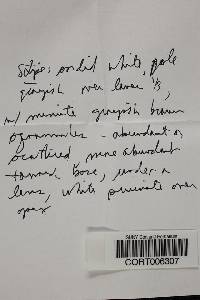 Stipe: sordid white, pale
grayish over lower 1/3,
w/ minute grayish brown
squamules - abundant or
scattered more abundant
toward base, under a
lens, white pruinate over
apex
CORT006307